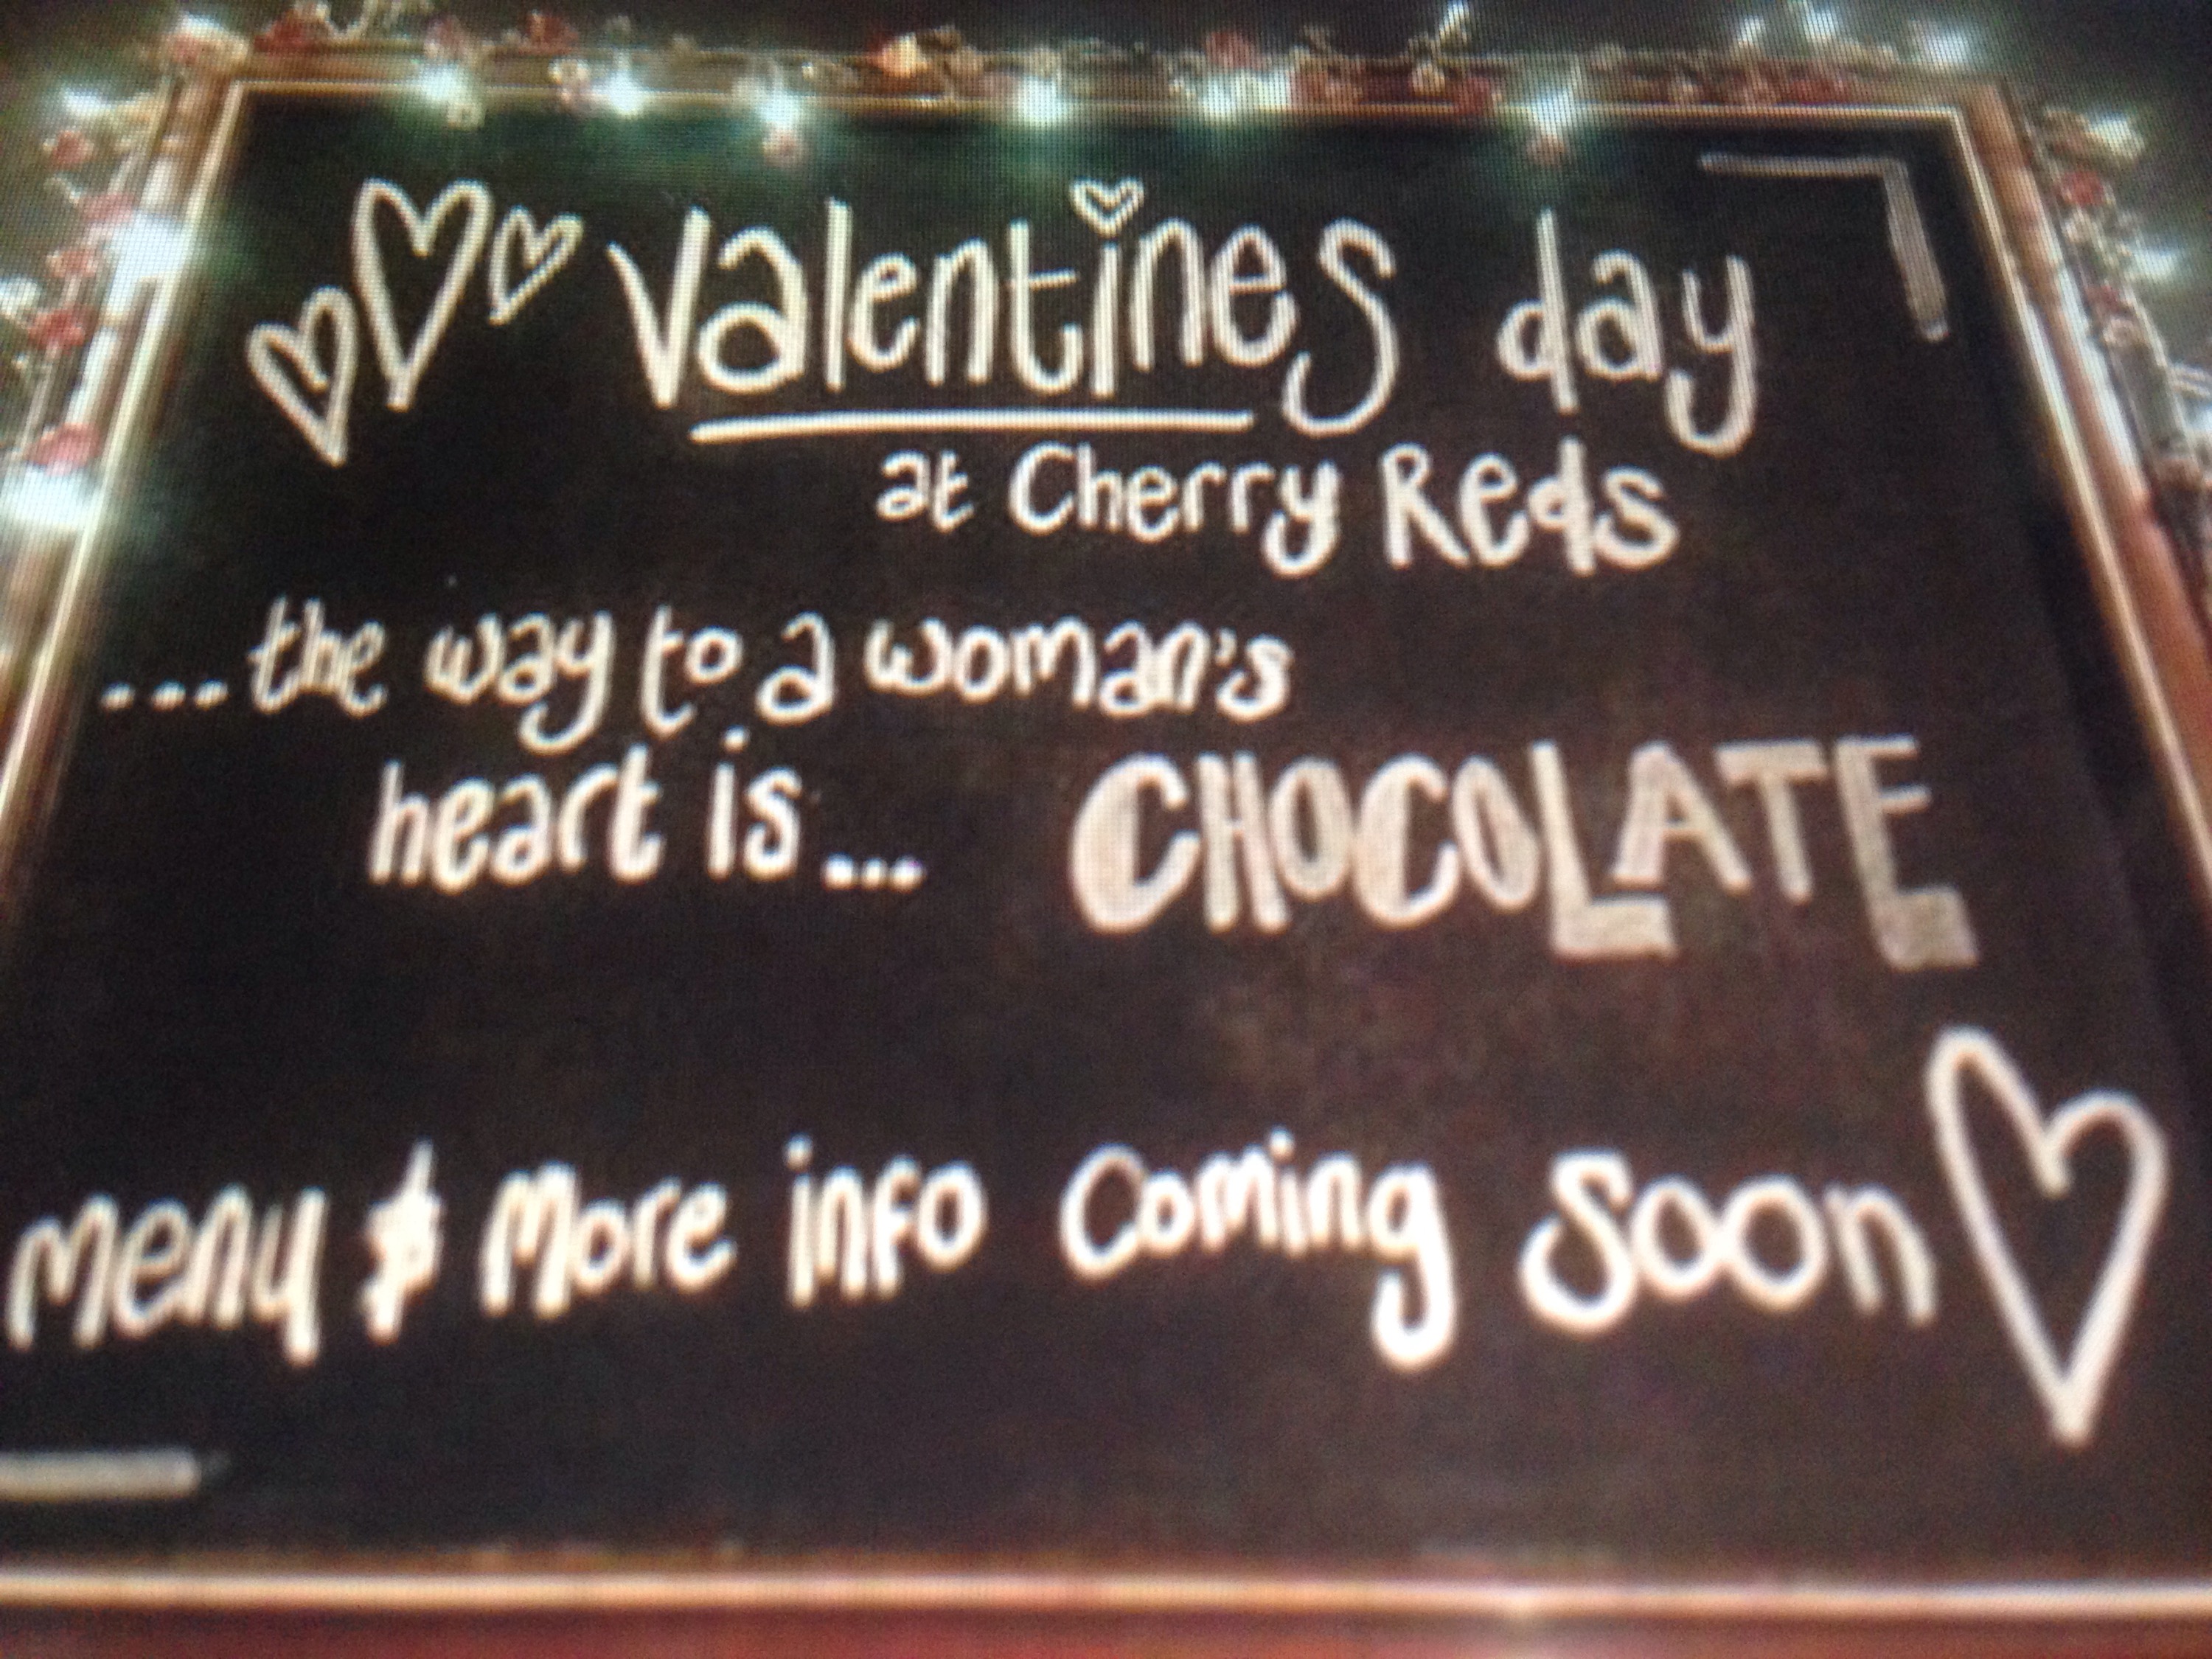 Valentines day
at Cherry Reds
...the way to a woman's
heart is... CHOCOLATE
Menu & More info Coming Soon